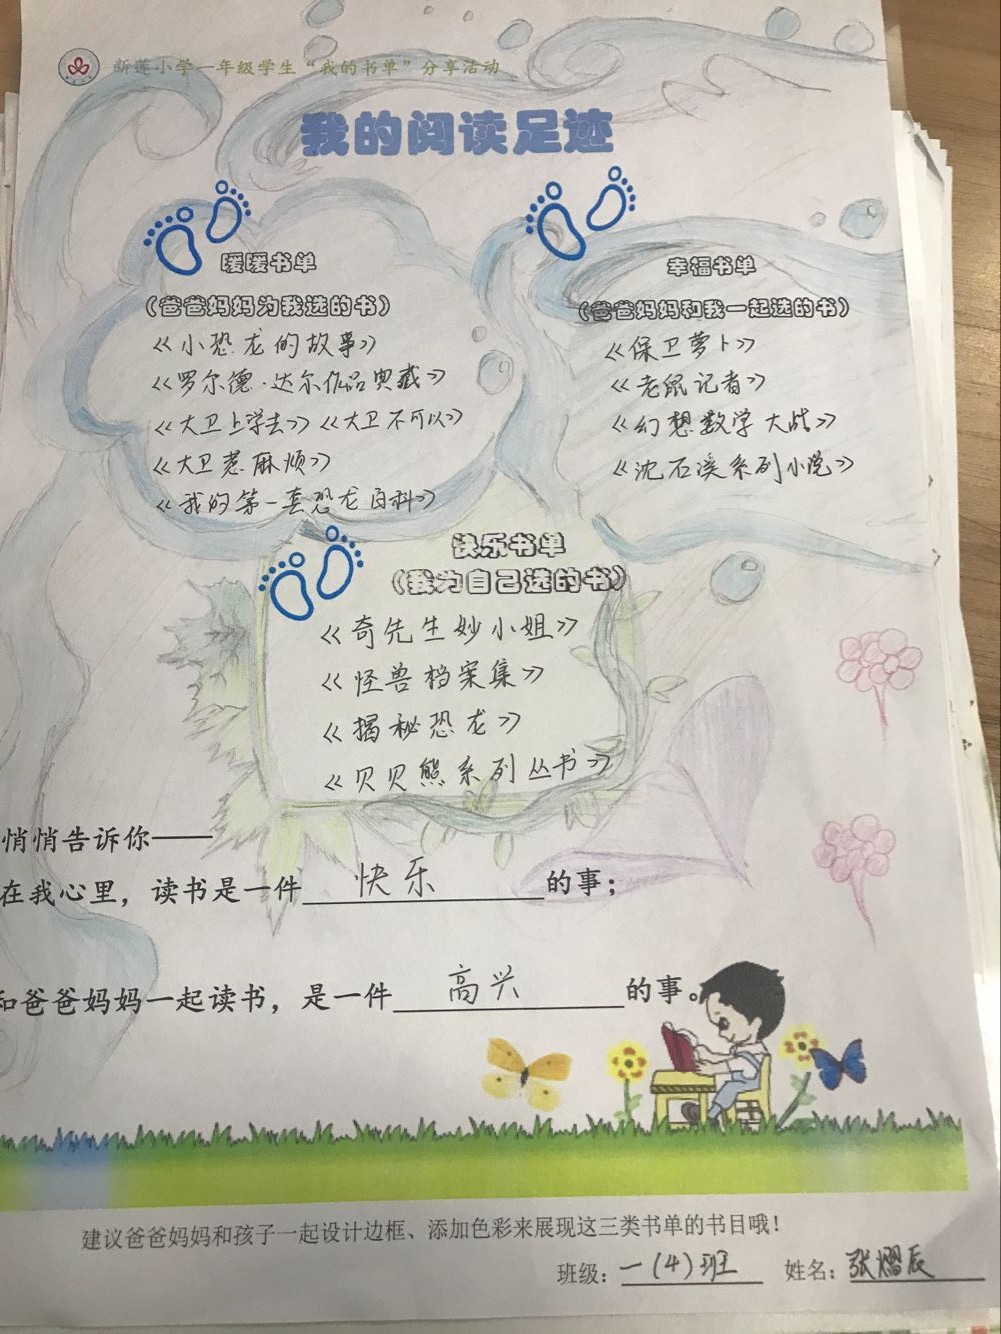 新莲小学一年级学生“我的书单”分享活动
我的阅读足迹
暖暖书单
（爸爸妈妈为我选的书）
《小恐龙的故事》
《罗尔德·达尔作品典藏》
《大卫上学去》《大卫不可以》
《大卫惹麻烦》
《我的第一套恐龙百科》
幸福书单
（爸爸妈妈和我一起选的书）
《保卫萝卜》
《老鼠记者》
《幻想数学大战》
《沈石溪系列小说》
快乐书单
（我为自己选的书）
《奇先生妙小姐》
《怪兽档案集》
《揭秘恐龙》
《贝贝熊系列丛书》
悄悄告诉你——
在我心里，读书是一件快乐的事；
和爸爸妈妈一起读书，是一件高兴的事。
建议爸爸妈妈和孩子一起设计边框、添加色彩来展现这三类书单的书目哦！
班级：一（4）班 姓名：张熠辰